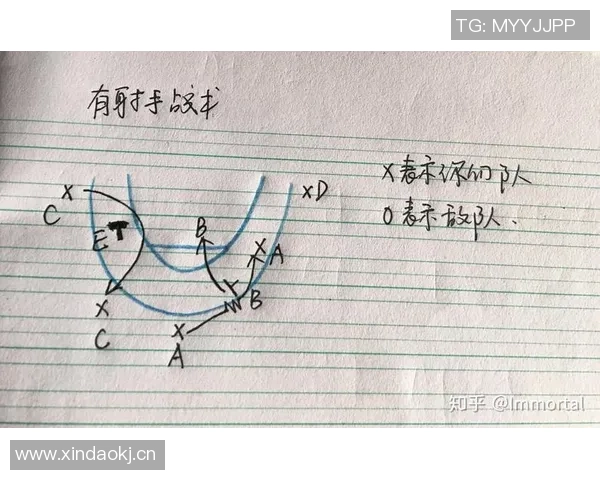 TG: MYYJJPP
有射手战术
X表示你们队
O表示敌队.
X
C
E
B
X
A
XD
X
C
X
A
B
知乎 @Immortal
www.xindaokj.cn